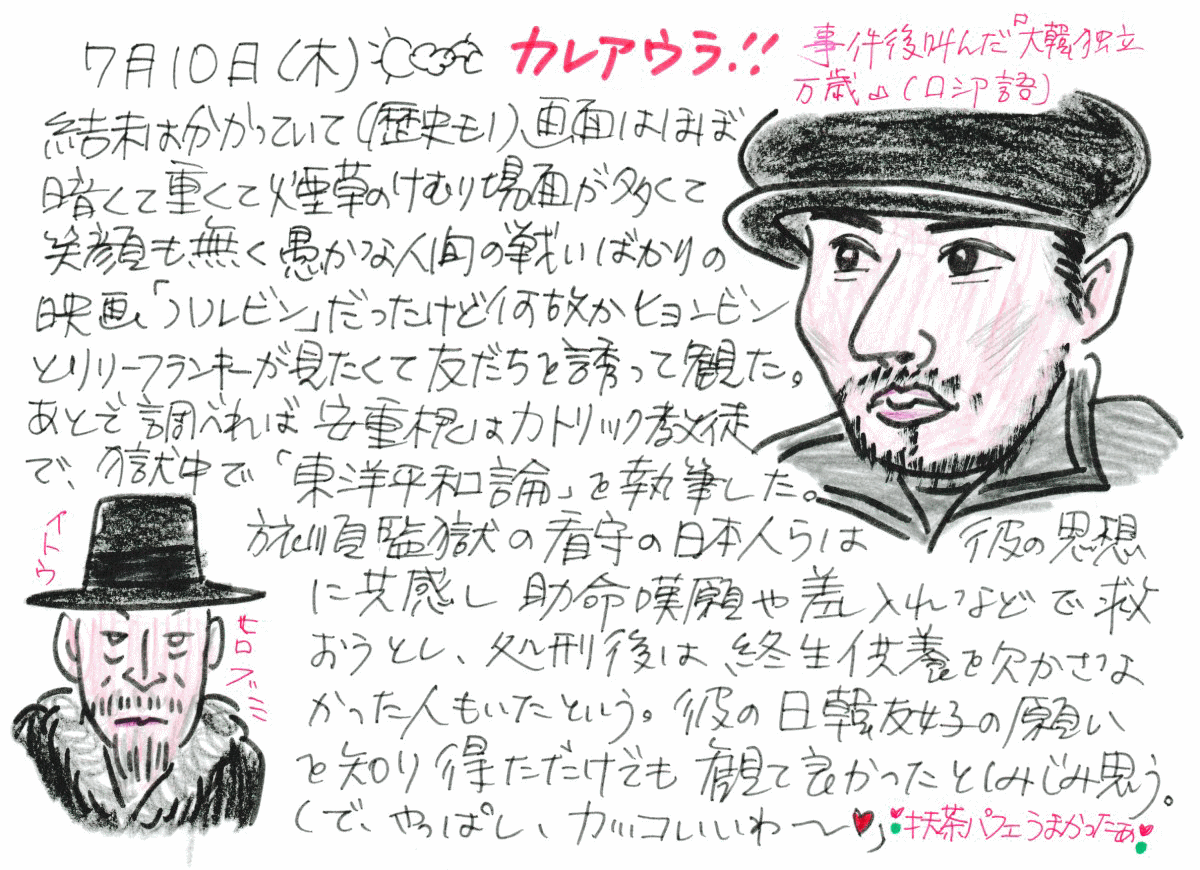 7月10日(木)
カレアウラ!!
事件後叫んだ『大韓独立
万歳』(ロシア語)
結末は分かっていて(歴史も!)、画面はほぼ
暗くて重くて煙草のけむり場面が多くて
笑顔も無く愚かな人間の戦いばかりの
映画「ハルビン」だったけど何故かヒョンビン
とリリーフランキーが見たくて友だちを誘って観た。
あとで調べれば安重根はカトリック教徒
で、獄中で「東洋平和論」を執筆した。
旅順監獄の看守の日本人らは 彼の思想
に共感し助命嘆願や差し入れなどで救
おうとし、処刑後は、終生供養を欠かさな
かった人もいたという。彼の日韓友好の願い
を知り得ただけでも観て良かったとしみじみ思う。
(で、やっぱし、カッコいいわ〜♥)
抹茶パフェうまかったぁ
イトウ
ヒロブミ